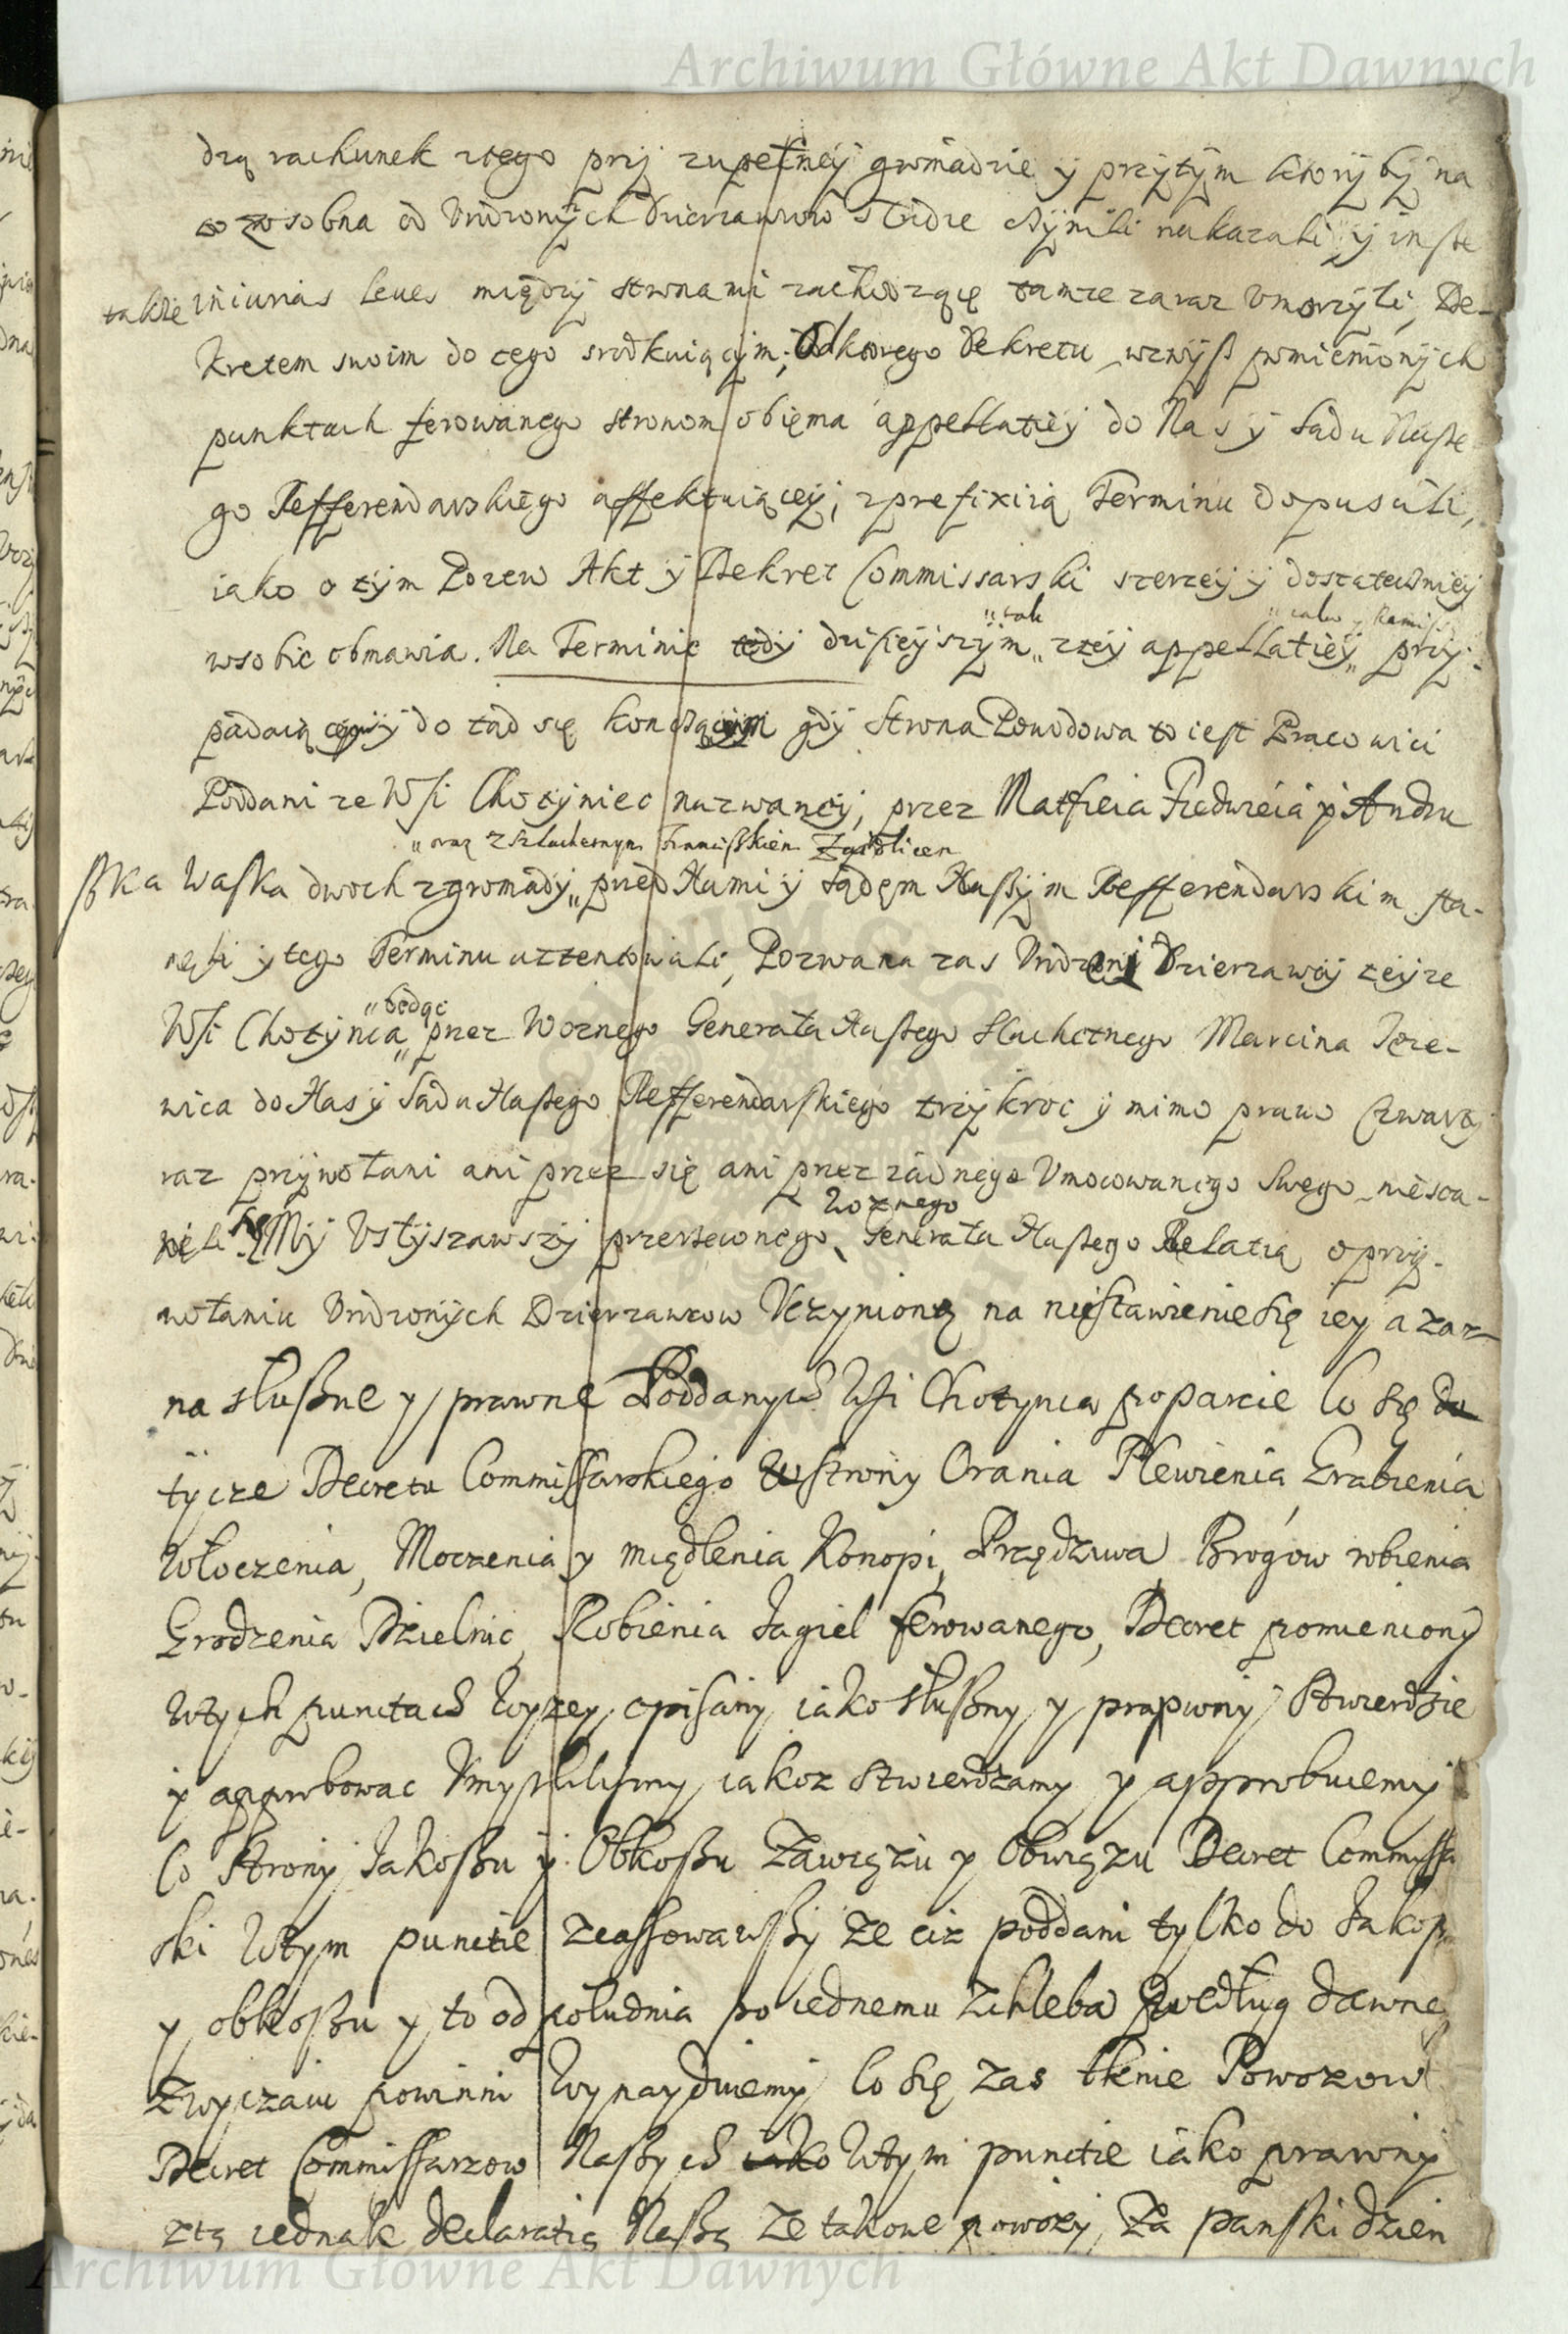 Archiwum Główne Akt Dawnych
dzą rachunek ztego przÿ zupełneÿ gromadzie ÿ przÿtÿm ktorÿ bÿ na
co zosobna od Urodzonÿch Dzierzawcow czÿnili nakazali, ÿ insze
także iniurias leues międzÿ stronami zachodzącę tamze zaraz Vmorzÿli, De-
kretem swoim do tego srodkuiącÿm; Od ktorego Dekretu wzwÿsz pomienionÿch
punktach ferowanego stronom obięma appellatieÿ do Nas ÿ Sądu Nasze
go Refferendarskiego affektuiąceÿ, zprefixiią Terminu dopuscili,
iako o tÿm Pozew Akt ÿ Dekret Commissarski szerzeÿ ÿ dostatecznieÿ
wsobie obmawia. Na Terminie tedÿ dzisieÿszÿm „ zteÿ appellatieÿ „ przÿ-
„ tak „ iako z kamis
padaiącÿm ÿ do tąd się konczącÿm gdÿ Strona Powodowa to iest Pracowici
Poddani ze Wsi Chotÿniec nazwaneÿ, przez Matfieia Fiedwieia ÿ Andru
„ oraz z Szlachetnym Franciszkiem
szka Waska dwoch zgromadÿ „ przed Nami ÿ Sądęm Naszÿm Refferendarskim sta-
nęli ÿ tego Terminu attentowali, Pozwana zas Urodzoni Dzierzawcÿ teÿze
„ bedąc
Wsi Chotÿnca „ przez Woznego Generała Naszego Slachetnego Marcina Ieze-
wica do Nas ÿ Sądu Naszego Refferendarskiego trzÿkroc ÿ mimo prawo czwartÿ
raz przÿwołani ani przez się ani przez zadnego Vmocowanego Swego niestа-
Woznego
nęli się Mÿ Vsłÿszawszÿ przerzeconego Generała Naszego Relatią o przÿ-
wołaniu Urodzonÿch Dzierzawcow Vczynioną na niestawienie się ieÿ a zaz
na słuszne y prawne Poddanych Wsi Chotynca poparcie Co się do
tycze Decretu Commissarskiego Wstrony Orania Plewienia, Grabienia
Włoczenia, Moczenia y międlenia Konopi, Przędziwa, Brogow robienia
Grodzenia Dzielnic, Robienia Jagieł ferowanego, Decret pomieniony
Wtych punctach Wyzey opisany iako słuszny y prawny Stwierdzic
y approbowac Vmyslilismy iakoz Stwierdzamy y approbuiemy
Co Strony Zakoszu y Obkoszu Zawięzu y Obwięzu Decret Commissa
ski Wtym puncie zcassowawszy ze ciz poddani tylko do Zakosz
y obkoszu y to od południa po iednemu zchleba według dawne
zwyczaiu powinni Wynayduiemy Co się zas tknie Powozow
Decret Commissarzow Naszych Wtym puncie iako prawny
ztą iednak declaratią Naszą ze takowe powozy, Za panski dzien
Archiwum Główne Akt Dawnych